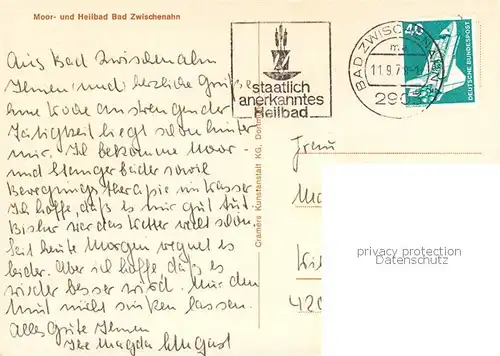 Moor- und Heilbad Bad Zwischenahn
Aus Bad Zwischenahn
Ihnen und herzliche Grüße
Eine Woche anstrengender
Tätigkeit liegt schon hinter
mir. Ich bekomme Moor-
und Stangerbäder sowie
Bewegungstherapie im Wasser
Ich hoffe, daß es mir gut tut.
Bisher war das Wetter recht schön.
Seit heute Morgen regnet es
leider. Aber ich hoffe, daß es
wieder besser wird. Nur den
Mut nicht sinken lassen.
Alles Gute Ihnen
Ihre Magda
Cramers Kunstanstalt KG, Dortmund
staatlich
anerkanntes
Heilbad
BAD ZWISCHENAHN
11.9.7
2903
40
DEUTSCHE BUNDESPOST
Frau
420
privacy protection
Datenschutz